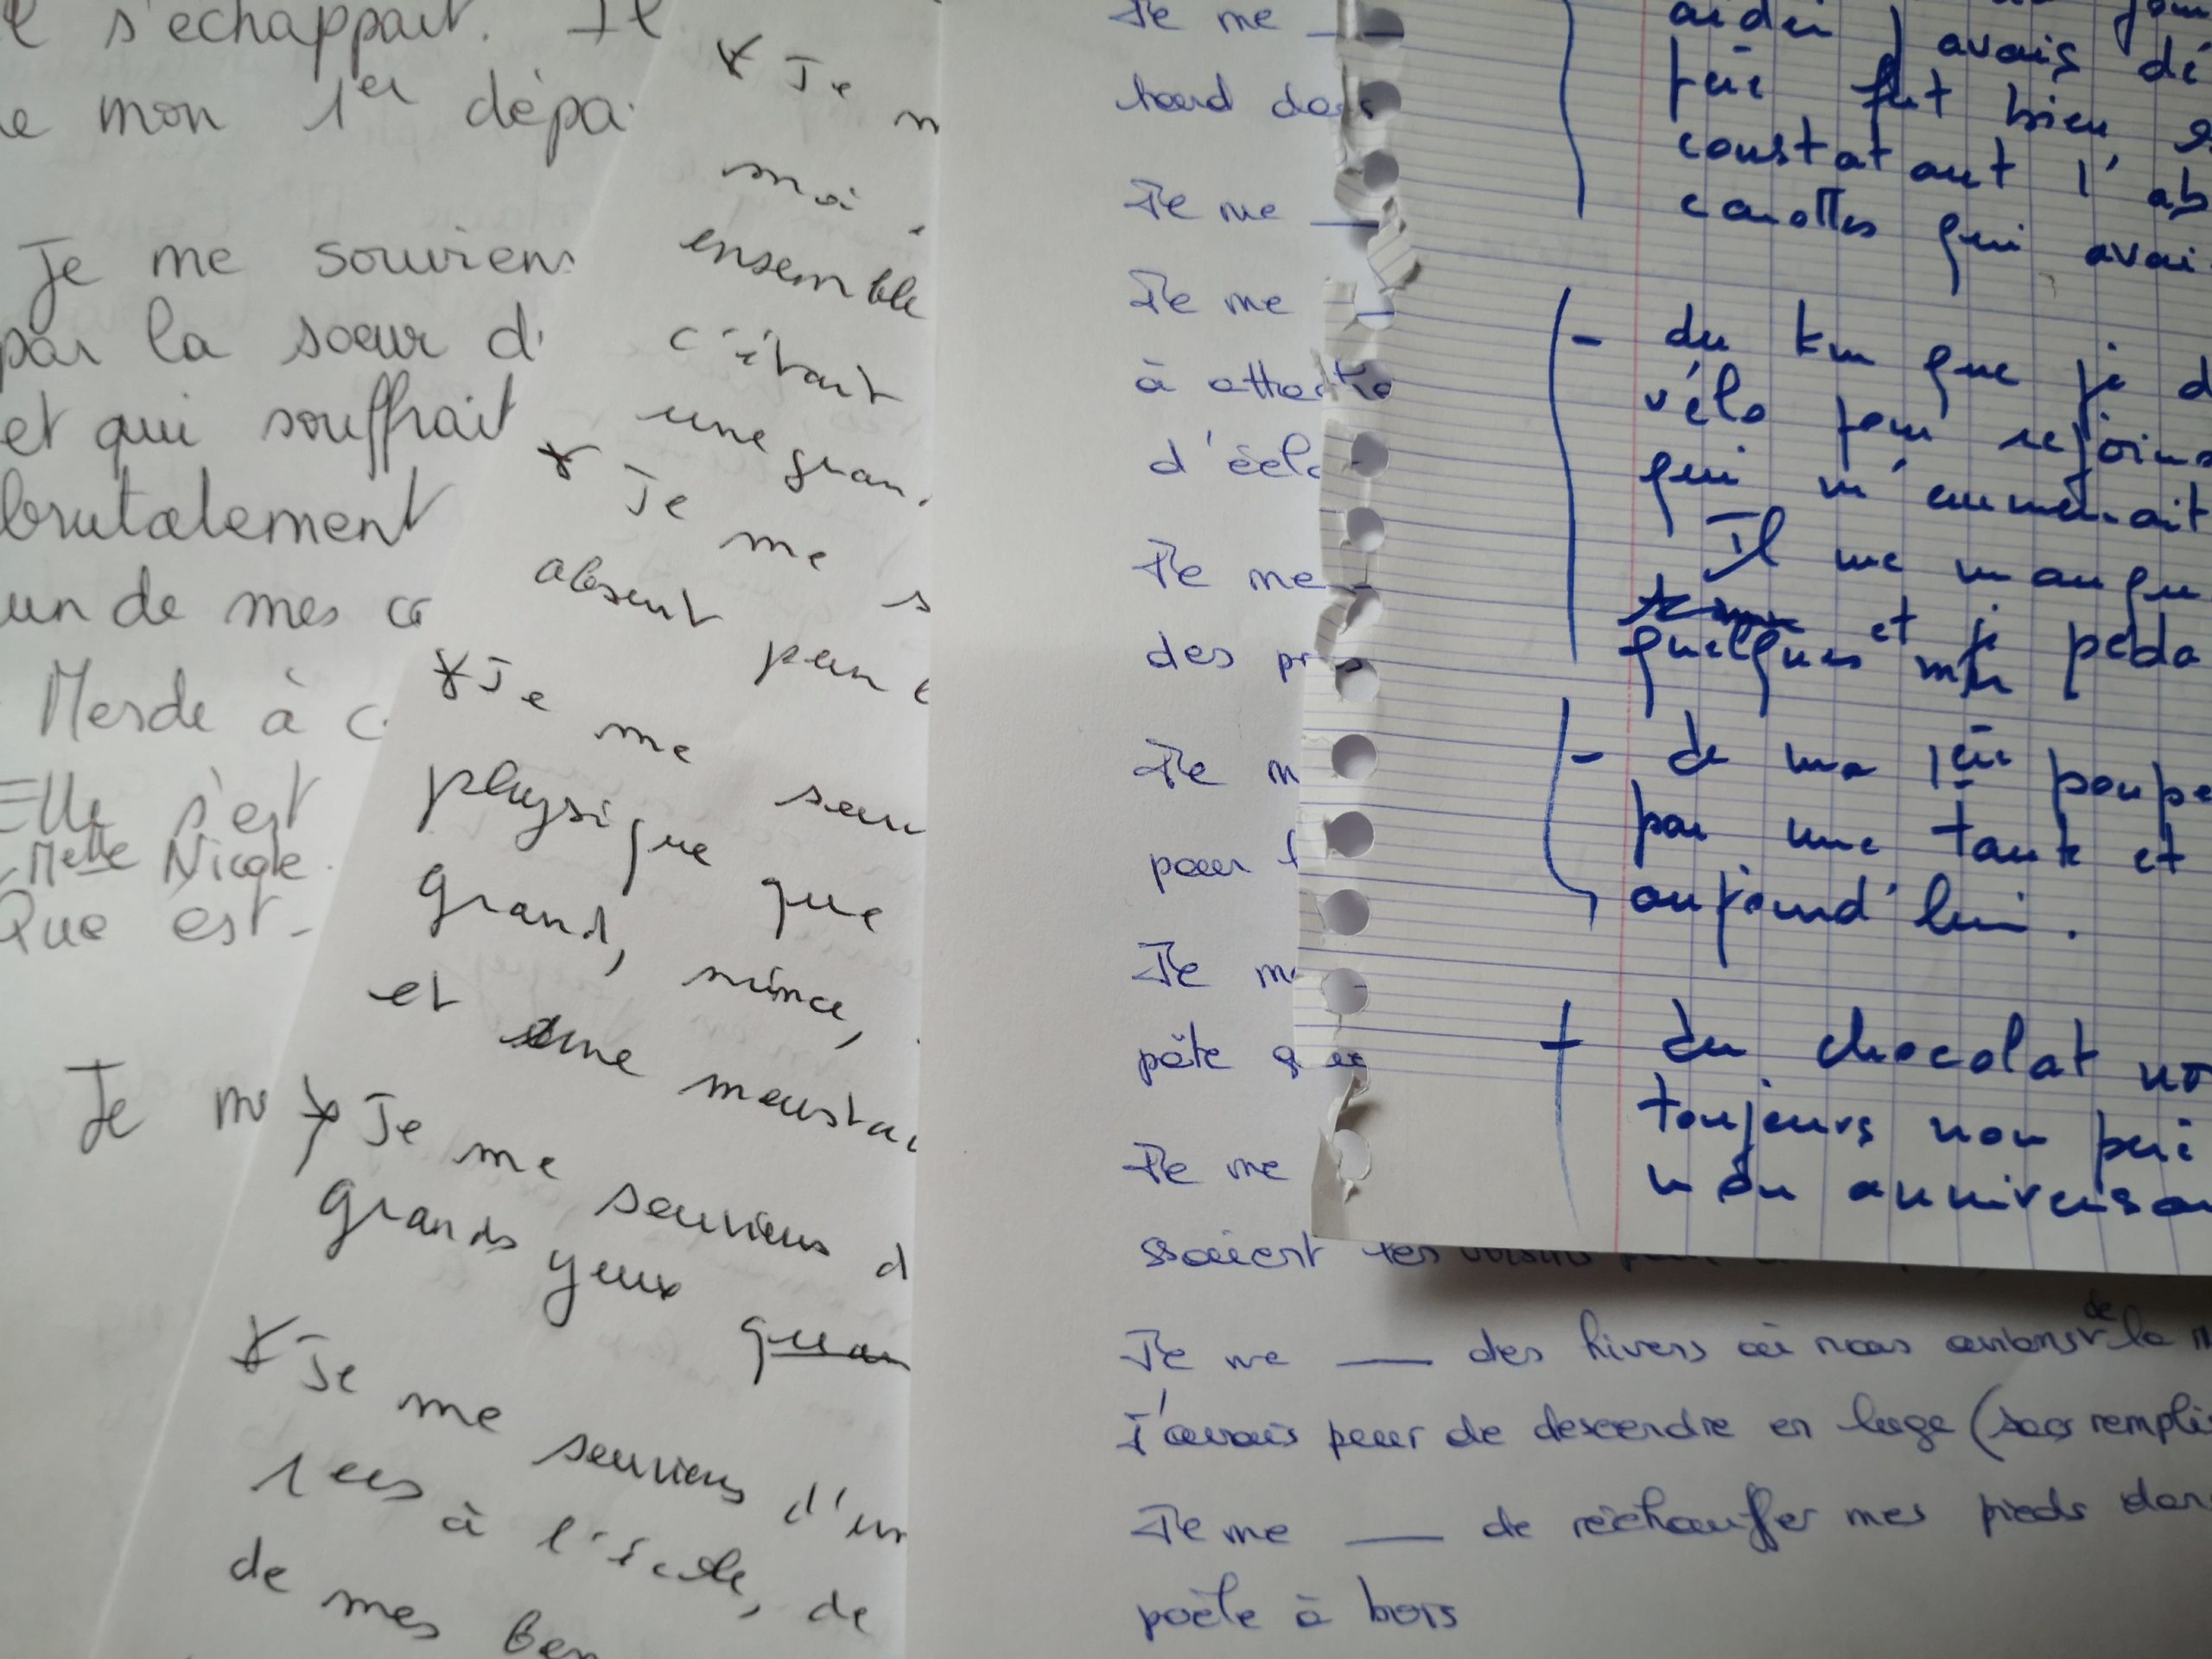 s'echappait. Il
mon 1er dépa
Je me souviens
par la sœur d'
et qui souffrait
brutalement
un de mes co
Merde à c
Elle s'est
Melle Nicole.
Que est-
Je me
Je m
moi
ensemble
c'était
une gran
Je me s
absent pen
Je me sou
physique que
grand, mince,
et une mousta
Je me souviens d
grands yeux
Je me souviens d'un
à l'école, de
de mes
Je me —
hard dans
Je me —
Je me —
à
d'écla
Je me —
des
Je m
pour l
Je me —
pâte que
Je me
ssaient les voisins
Je me — des hivers où nous avions de la n
J'avais peur de descendre en luge (sac rempli
Je me — de réchauffer mes pieds dans
poêle à bois
aider j'avais dé
père fut bien
constatant l'ab
carottes qui avai
- du km que je d
vélo pour rejoins
qui m'emmenait
Il me manqu
quelques et je péda
- de ma 1ère poupé
par une tante et
aujourd'hui.
+ du chocolat no
toujours non
mon anniversa